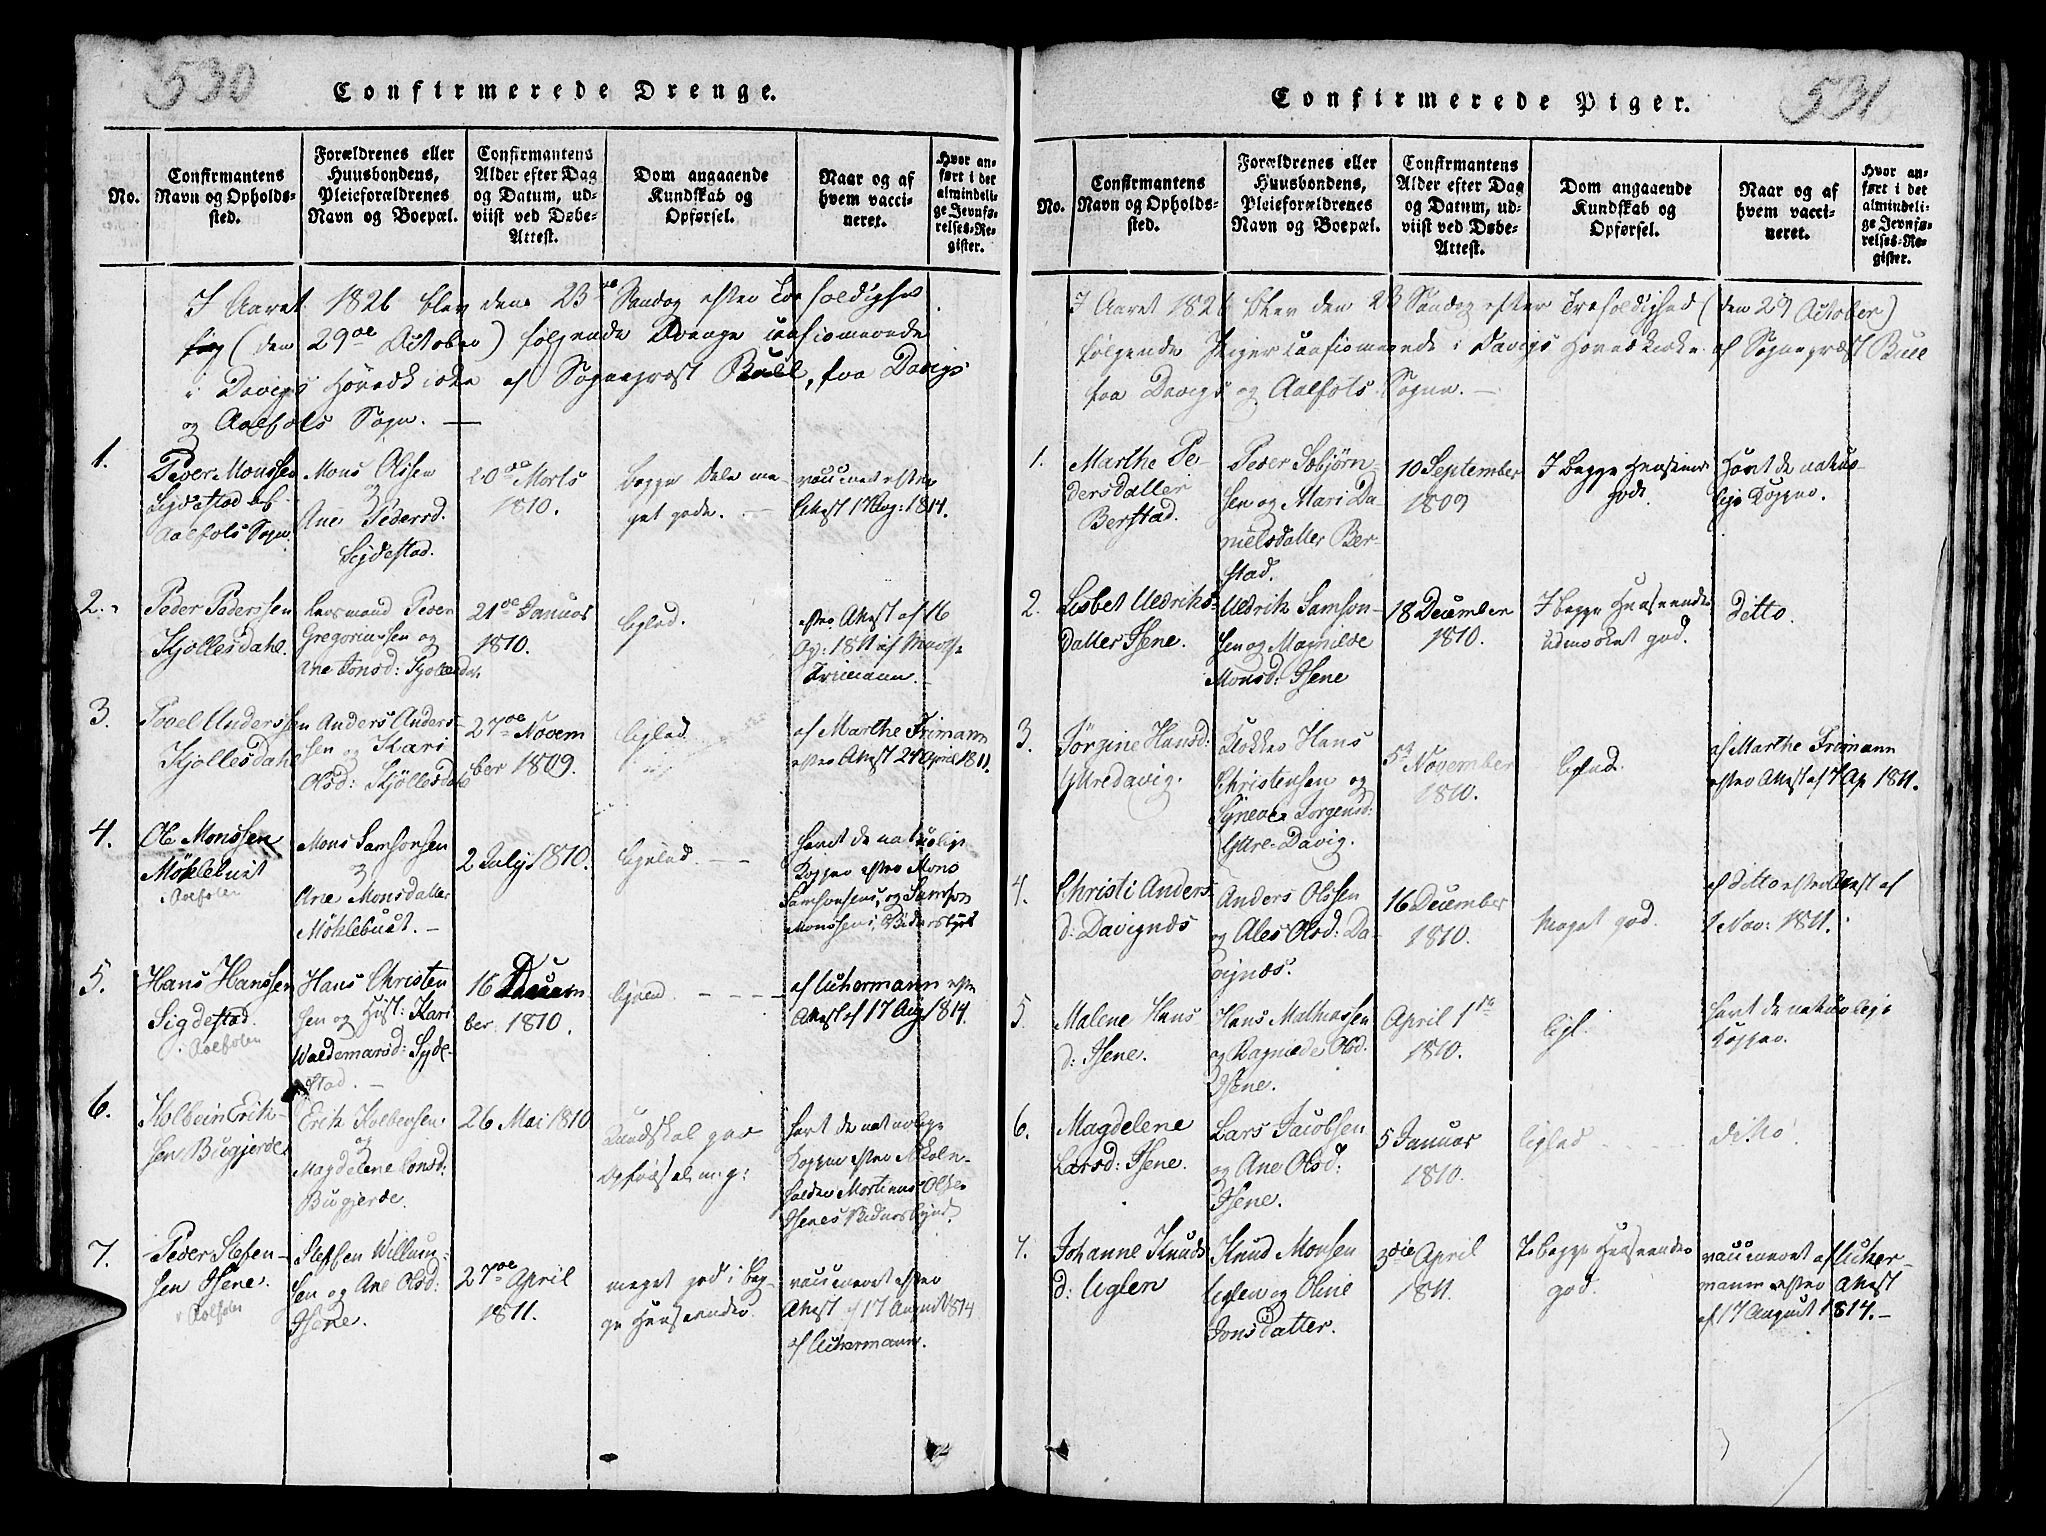 530
Confirmerede Drenge.
No.
Confirmantens
Navn og Opholds-
sted.
Forældrenes eller
Huusbondens,
Pleieforældrenes
Navn og Boepæl.
Confirmantens
Alder efter Dag
og Datum, ud-
viist ved Døbe-
Attest.
Dom angaaende
Kundskab og
Opførsel.
Naar og af
hvem vacci-
neret.
Hvor an-
ført i det
almindeli-
ge Jevnfø-
relses-Re-
gister.
I Aaret 1826 blev den 23de Søndag efter Trefoldighed
(den 29de October) følgende Drenge confirmerede
i Davigs Hovedkirke af Sognepræst Bull, fra Davigs
og Aalfots Sogn. —
1.
Peder Monssen
Sigdestad af
Aalfots Sogn.
Mons Olsen
og
Ane Pedersd.
Sigdestad.
20de Morts
1810.
begge Dele me-
get gode. —
vaccineret efter
Attest 17 Aug: 1814.
2.
Peder Pederssen
Kjøllesdahl.
Leermand Peder
Gregoriussen og
Ane Jonsd:
21de Januar
1810.
ligeled.
efter Attest af 16
Ap: 1811 af Marthe
Frimann.
3.
Povel Anderssen
Kjøllesdahl
Anders Anders-
sen og Kari
Olsd: Kjøllesdahl
27de Novem
ber 1809.
ligeled.
af Marthe Frimann
efter Attest 24 April 1811.
4.
Ole Monssen
Møhlebust
i Aalfoten
Mons Samsonsen
og
Ane Monsdatter
Møhlebust. —
2 Julij 1810.
ligeled. — —
havt de naturlige
Kopper efter Mons
Samsonsens, og Samson
Monssens Vidnesbyrd
5.
Hans Hanssen
Sigdestad.
i Aalfoten
Hans Christen
sen og Hust: Kari
Waldemarsd: Syde-
stad. —
16 Decem
ber 1810.
ligeled. — — —
af Uchermann efter
Attest af 17 Aug 1814.
6.
Kolbein Erik-
sen Bugjerde
Erik Kolbensen
og
Magdelene Jonsd:
Bugjerde.
26 Mai 1810
Kundskab god
Opførsel meg:
havt de naturlige
Kopper efter Skole-
holder Mortinus Olsen
Isenes Vidnesbyrd.
7.
Peder Stefen-
sen Isene.
i Aalfoten
Steffen Willum-
sen og Ane Olsd:
Isene.
27de April
1811.
meget god i beg-
ge Henseender.
vaccineret efter
Attest af 17 August 1814
af Uchermann.
531
Confirmerede Piger.
No.
Confirmantens
Navn og Opholds-
sted.
Forældrenes eller
Huusbondens,
Pleieforældrenes
Navn og Boepæl.
Confirmantens
Alder efter Dag
og Datum, ud-
viist ved Døbe-
Attest.
Dom angaaende
Kundskab og
Opførsel.
Naar og af
hvem vacci-
neret.
Hvor an-
ført i det
almindeli-
ge Jevnfø-
relses-Re-
gister.
I Aaret 1826 blev den 23 Søndag efter Trefoldighed (den 29 October)
følgende Piger confirmerede i Davigs Hovedkirke af Sognepræst Bull
fra Davigs og Aalfots Sogn. —
1.
Marthe Pe-
dersdatter
Berstad.
Peder Esbjørn-
sen og Mari Da-
nielsdatter Ber-
stad.
10 September
1809
I begge Henseender
god.
Havt de natur-
lige Kopper.
2.
Lisbet Uldriks-
datter Isene.
Uldrik Samson-
sen og Magnilde
Monsd: Isene
18 December
1810.
I begge Henseender
udmærket god.
ditto.
3.
Jørgine Hansd:
Yttredavig.
Klokker Hans
Christensen og
Synneve Jørgensd:
Yttre-Davig.
5te November
1810.
ligeled.
af Marthe Frimann
efter Attest af 7 Ap 1811.
4.
Christi Anders
d: Davignæs
Anders Olssen
og Ales Olsd: Da-
vignæs.
16 December
1810.
Meget god.
af ditto efter Attest af
1 Nov: 1811.
5.
Malene Hans
d: Isene.
Hans Mathiassen
og Ragnilde Olsd.
Isene.
April 1ste
1810.
ligl.
havt de naturlige
Kopper.
6.
Magdelene
Larsd: Isene.
Lars Jacobsen
og Ane Olsd:
Isene.
5 Januar
1810.
ligeled
ditto.
7.
Johanne Knuds
d: Uglen
Knud Monsen
Uglen og Oline
Jonsdatter.
3die April
1811.
I begge Henseender
god.
vaccineret af Ucher-
mann efter Attest
af 17 August 1814. —